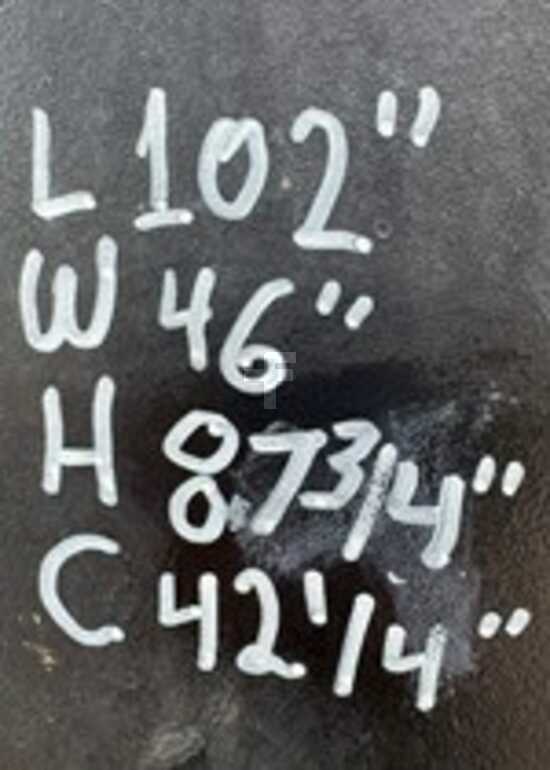 L 102"
W 46"
H 87 3/4"
C 42 1/4"